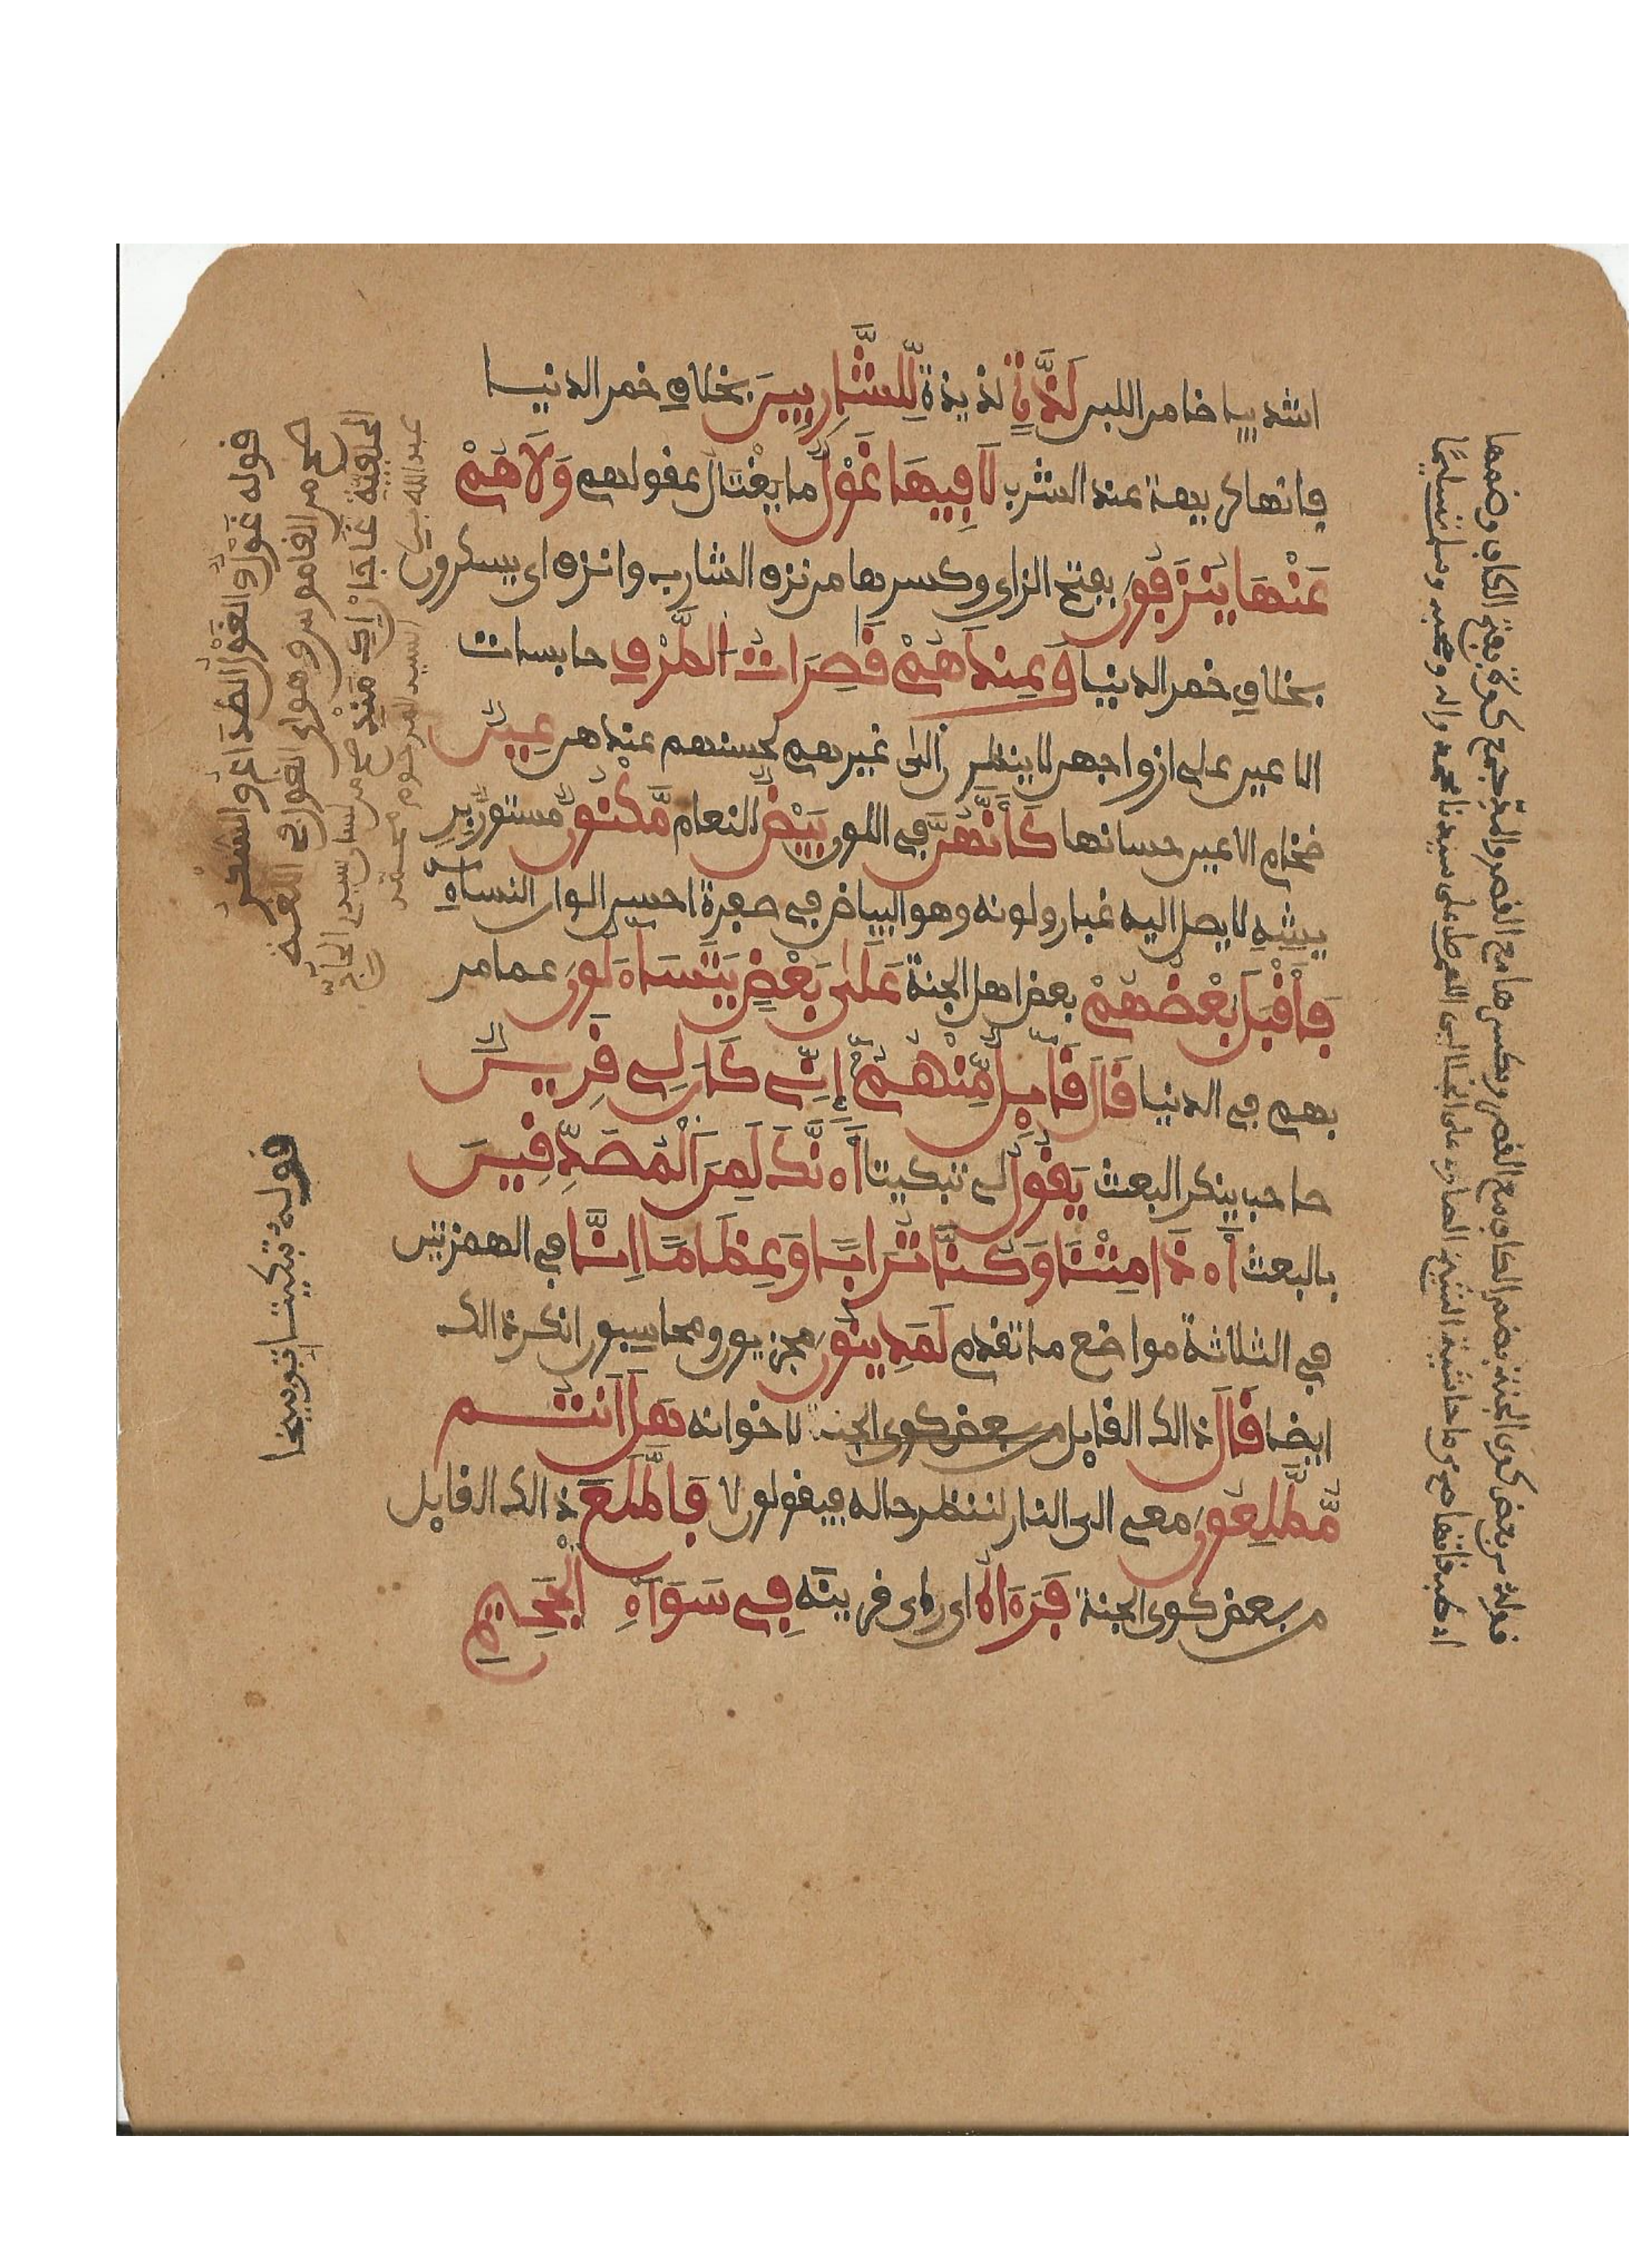 اشد بياضا من اللبن لَذَّةٍ لذيذة لِّلشَّٰرِبِينَ بخلاف خمر الدنيا
فانها كريهة عند الشرب لَا فِيهَا غَوْلٌ ما يغتال عقولهم وَلَا هُمْ
عَنْهَا يُنزَفُونَ بفتح الزاى وكسرها من نزف الشارب وانزف اى يسكرون
بخلاف خمر الدنيا وَعِندَهُمْ قَٰصِرَاتُ الطَّرْفِ حابسات
الاعين على ازواجهن لا ينظرن الى غيرهم لحسنهم عندهن عِينٌ
ضخام الاعين حسانها كَأَنَّهُنَّ في اللون بَيْضٌ للنعام مَّكْنُونٌ مستور بر
يشه لا يصل اليه غبار ولونه وهو البياض في صفرة احسن الوان النساء
فَأَقْبَلَ بَعْضُهُمْ بعض اهل الجنة عَلَىٰ بَعْضٍ يَتَسَاءَلُونَ عما مر
بهم في الدنيا قَالَ قَآئِلٌ مِّنْهُمْ إِنِّي كَانَ لِي قَرِينٌ
صاحب ينكر البعث يَقُولُ لي تبكيتا أَءِنَّكَ لَمِنَ الْمُصَدِّقِينَ
بالبعث أَءِذَا مِتْنَا وَكُنَّا تُرَابًا وَعِظَامًا اِنَّا في الهمزتين
في الثلاثة مواضع ما تقدم لَمَدِينُونَ مجزيون ومحاسبون انكر ذالك
ايضا قَالَ ذالك القايل من بعض كوى الجنة لاخوانه هَلْ أَنتُم
مُّطَّلِعُونَ معي الى النار لننظر حاله فيقولون لا فَاطَّلَعَ ذالك القايل
من بعض كوى الجنة فَرَءَاهُ اى راى قرينه فِي سَوَآءِ الْجَحِيمِ
قوله غَوْلٌ والغَوْلُ الصُّدَاعُ والسُّكْرُ
صح من القاموس وهو اى الغول في اللغة
قوله تبكيتا توبيخا
قوله من بعض كوى الجنة بضم الكاف مع القصر وبكسرها مع القصر والمد جمع كوة بفتح الكاف وضمها